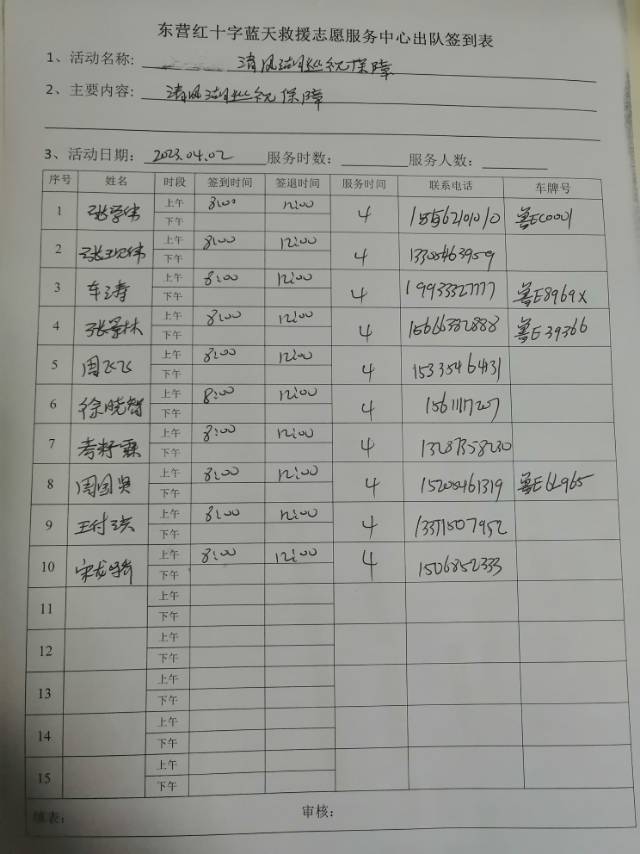 东营红十字蓝天救援志愿服务中心出队签到表
1、活动名称: 清风湖巡视保障
2、主要内容: 清风湖巡视保障
3、活动日期: 2023.04.02 服务时数: 服务人数:
序号 姓名 时段 签到时间 签退时间 服务时间 联系电话 车牌号
1 上午 8:00 12:00 4 鲁EC0001
下午
2 上午 8:00 12:00 4
下午
3 车涛 上午 8:00 12:00 4 19933327777 鲁E8969X
下午
4 张景林 上午 8:00 12:00 4 15666382888 鲁E39366
下午
5 周飞飞 上午 8:00 12:00 4 15335464131
下午
6 徐晓智 上午 8:00 12:00 4
下午
7 上午 8:00 12:00 4 13287358230
下午
8 周国贤 上午 8:00 12:00 4 15200461319
下午
9 上午 8:00 12:00 4 13371507952
下午
10 宋龙骑 上午 8:00 12:00 4 1506852333
下午
11 上午
下午
12 上午
下午
13 上午
下午
14 上午
下午
15 上午
下午
填表: 审核: